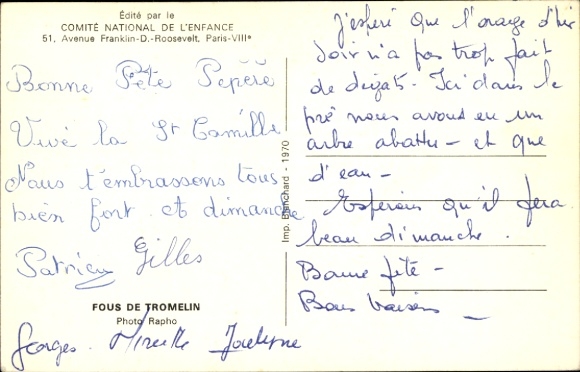 Édité par le
COMITÉ NATIONAL DE L'ENFANCE
51, Avenue Franklin-D.-Roosevelt, Paris-VIIIe
Bonne Fête Pépère
Vive la St Camille
Nous t'embrassons tous
bien fort et dimanche
Patricia Gilles
FOUS DE TROMELIN
Photo Rapho
Georges. Mireille Jocelyne
Imp. Blanchard - 1970
J'espère que l'orage d'hier
soir n'a pas trop fait
de dégats. Ici dans le
pré nous avons eu un
arbre abattu - et que
d'eau -
Espérons qu'il fera
beau dimanche.
Bonne fête -
Bons baisers -